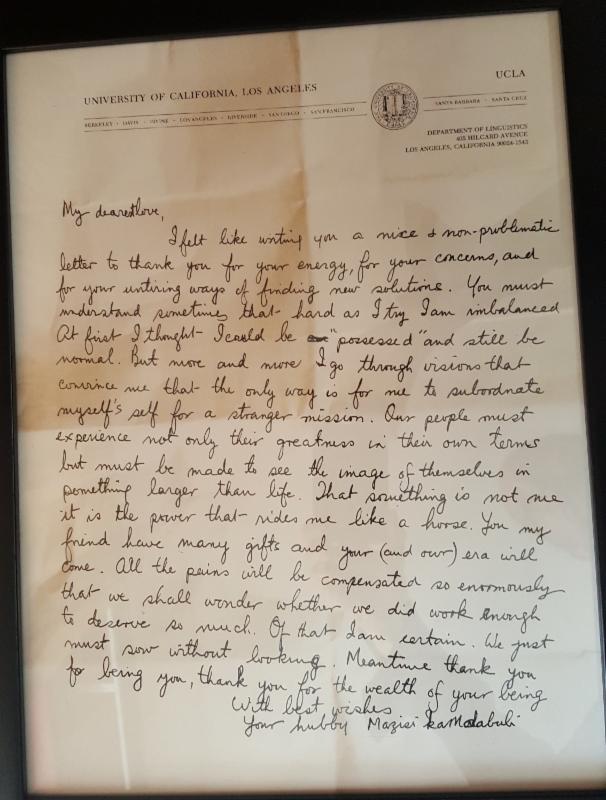 UCLA
UNIVERSITY OF CALIFORNIA, LOS ANGELES
BERKELEY · DAVIS · IRVINE · LOS ANGELES · RIVERSIDE · SAN DIEGO · SAN FRANCISCO
SANTA BARBARA · SANTA CRUZ
DEPARTMENT OF LINGUISTICS
405 HILGARD AVENUE
LOS ANGELES, CALIFORNIA 90024-1543
My dearest love,
I felt like writing you a nice & non-problematic
letter to thank you for your energy, for your concerns, and
for your untiring ways of finding new solutions. You must
understand sometimes that hard as I try I am imbalanced
At first I thought I could be "possessed" and still be
normal. But more and more I go through visions that
convince me that the only way is for me to subordnate
myself's self for a stranger mission. Our people must
experience not only their greatness in their own terms
but must be made to see the image of themselves in
something larger than life. That something is not me
it is the power that rides me like a horse. You my
friend have many gifts and your (and our) era will
come. All the pains will be compensated so enormously
that we shall wonder whether we did work enough
to deserve so much. Of that I am certain. We just
must sow without looking. Meantime thank you
for being you, thank you for the wealth of your being
With best wishes
Your hubby Mazisi